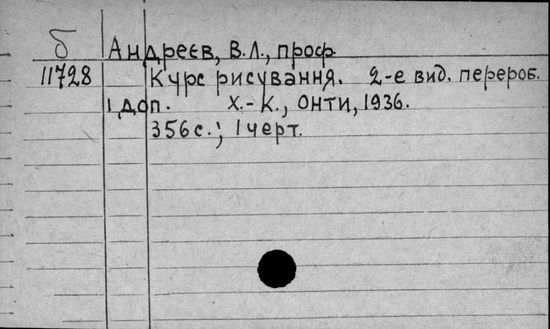 б Андреєв, В.Л., проф.
11728 Курс рисування. 2-е вид. перероб.
і доп. Х.-К., Онти, 1936.
356с.; 1 черт.